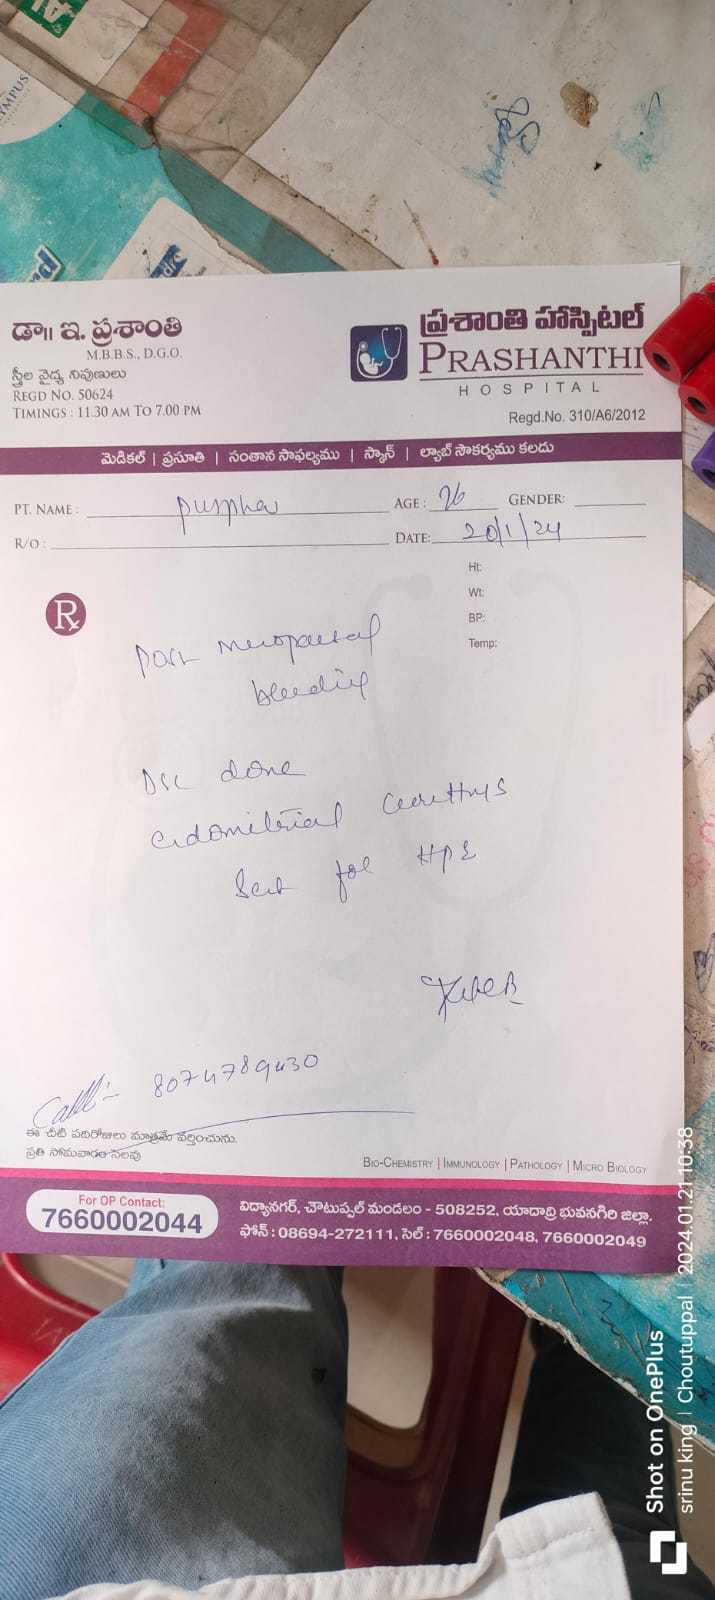 డా॥ ఇ. ప్రశాంతి
M.B.B.S., D.G.O.
స్త్రీల వైద్య నిపుణులు
REGD NO. 50624
TIMINGS : 11.30 AM TO 7.00 PM
ప్రశాంతి హాస్పిటల్
PRASHANTHI
HOSPITAL
Regd.No. 310/A6/2012
మెడికల్ | ప్రసూతి | సంతాన సాఫల్యము | స్కాన్ | ల్యాబ్ సౌకర్యము కలదు
PT. NAME : AGE : 26 GENDER:
R/O : DATE: 20/1/24
Ht:
Wt:
BP:
Temp:
Rx
Post menopausal
bleeding
D&C done
endometrial curettings
Sent for HPE
Call:- 8074789430
ఈ చీటి పదిరోజులు మాత్రమే వర్తించును.
ప్రతి సోమవారం సెలవు
BIO-CHEMISTRY | IMMUNOLOGY | PATHOLOGY | MICRO BIOLOGY
For OP Contact:
7660002044
విద్యానగర్, చౌటుప్పల్ మండలం - 508252, యాదాద్రి భువనగిరి జిల్లా.
ఫోన్ : 08694-272111, సెల్ : 7660002048, 7660002049
Shot on OnePlus
srinu king | Choutuppal | 2024.01.21 10:38